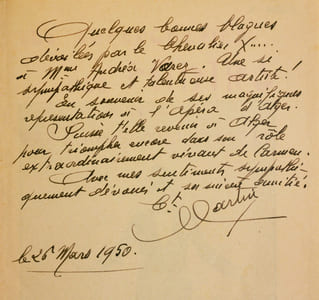 Quelques bonnes blagues
dévoilées par le Chevalier X.....
à Mme Andréa          Une si
sympathique et talentueuse artiste!
En souvenir de ses magnifiques
représentations à l'Opéra d'Alger.
Puisse t'elle revenir à Alger
pour triompher encore dans son rôle
extraordinairement vivant de Carmen.
Avec mes sentiments sympathi-
quement dévoués et          amitié.
Martin
le 25 Mars 1950.